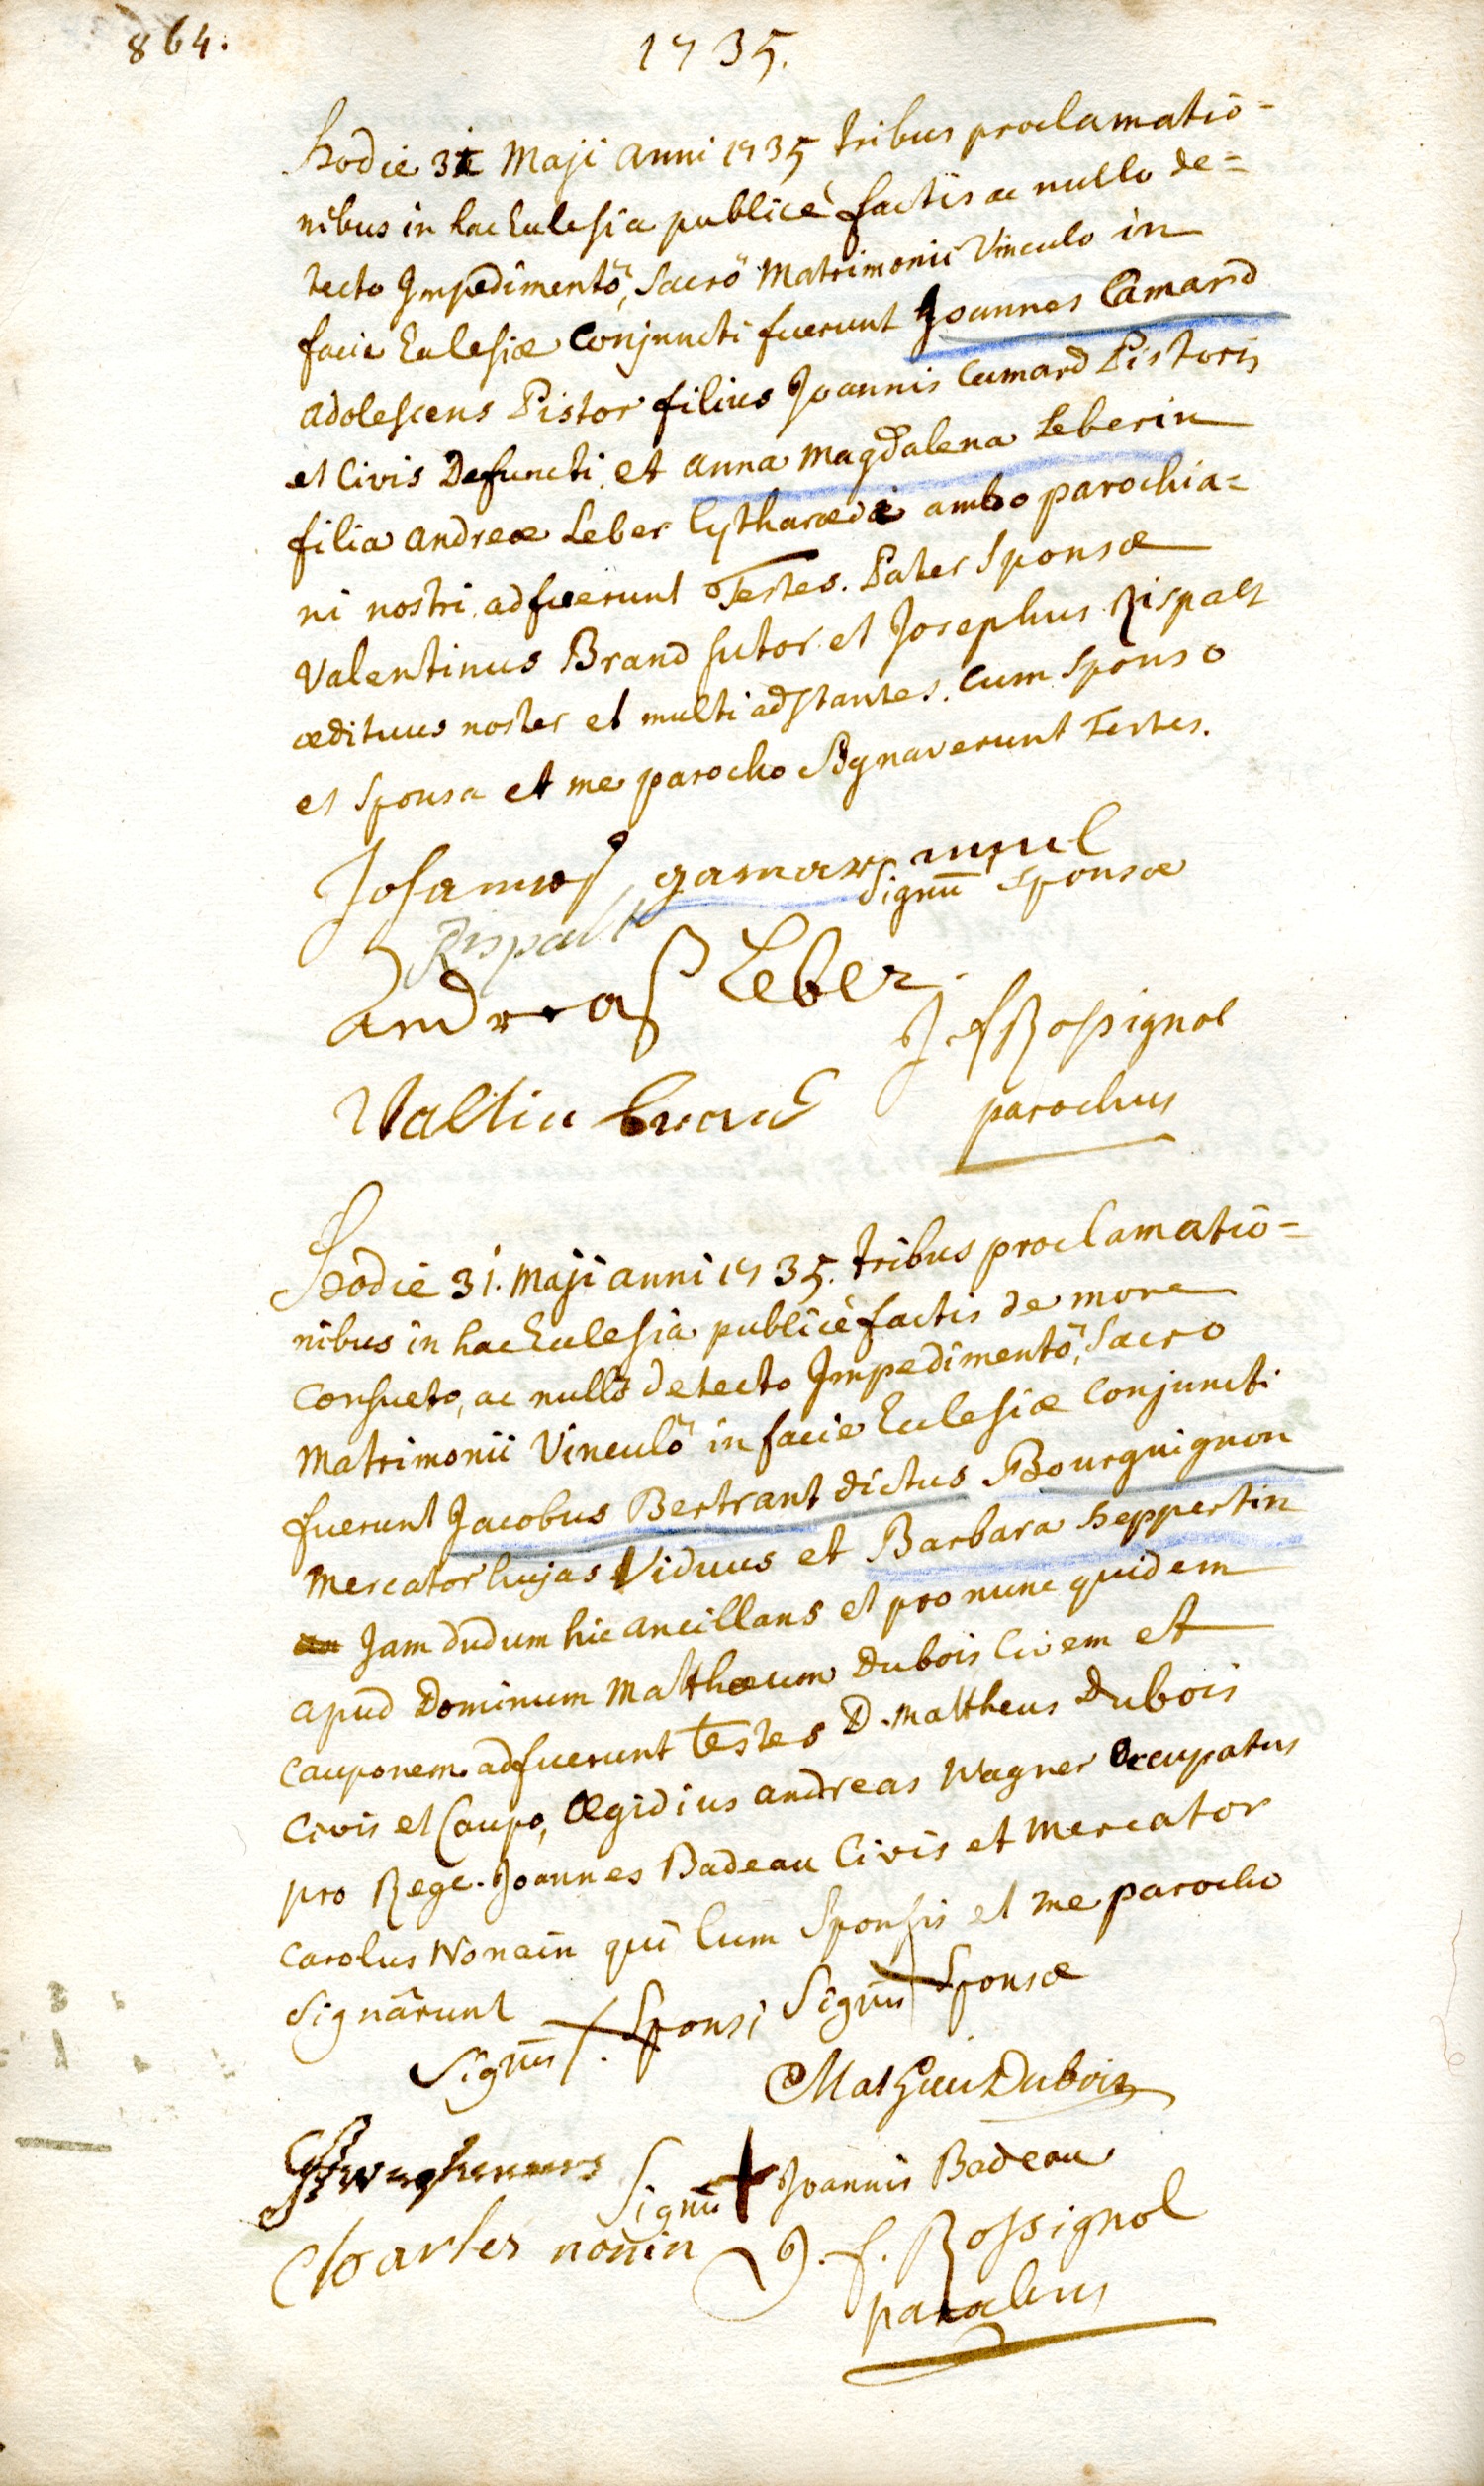 864.
1735.
Hodie 31 Maji anni 1735 tribus proclamatio=
nibus in hac Ecclesia publicè factis ac nullo de=
tecto Impedimentô, Sacrô Matrimonii Vinculo in
facie Ecclesiæ Conjuncti fuerunt Joannes Camard
adolescens Pistor filius Joannis Camard Pistoris
et Civis Defuncti, et anna Magdalena Leberin
filia andreæ Leber Cytharædi ambo parochia=
ni nostri, adfuerunt Testes. Pater Sponsæ
Valentinus Brand sutor et Josephus Rispalt
ædituus noster et multi adstantes. Cum Sponso
et Sponsa et me parocho Signaverunt Testes.
Johannes gamar
Signū Sponsæ
Rispalt
andreas Leber
J f Rossignol
Valtin brand
parochus
Hodie 31. Maji anni 1735. tribus proclamatio=
nibus in hac Ecclesia publicè factis de more
Consueto, ac nullô detecto Impedimentô, Sacro
Matrimonii Vinculô in facie Ecclesiæ Conjuncti
fuerunt Jacobus Bertrant dictus Bourguignon
Mercator hujas Viduus et Barbara Heppertin
Jam dudum hic ancillans et pro nunc quidem
apud Dominum Matthæum Dubois Civem et
Cauponem. adfuerunt testes D. Mattheus Dubois
Civis et Caupo, Ægidius andreas Wagner Occupatus
pro Rege. Joannes Badeau Civis et Mercator
Carolus Nonain qui Cum Sponsis et me parocho
Signârunt
Signū Sponsi Signū Sponsæ
Mathieu Dubois
Signū Joannis Badeau
Charles nonin J. f. Rossignol
parochus